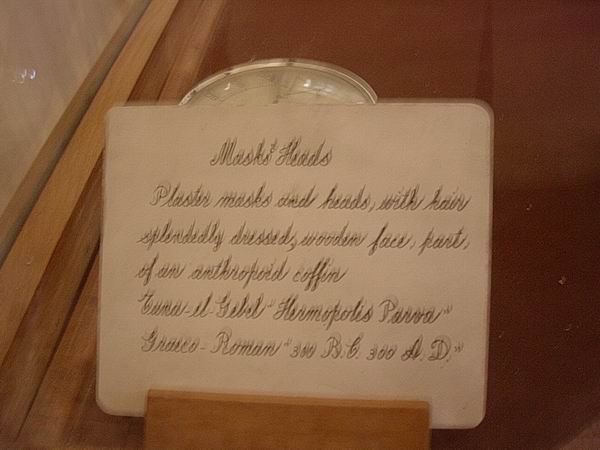 Masks & Heads
Plaster masks and heads, with hair
splendedly dressed, wooden face, part,
of an anthropoid coffin
Tuna-el-Gebel "Hermopolis Parva"
Graeco-Roman "300 B.C. 300 A.D."